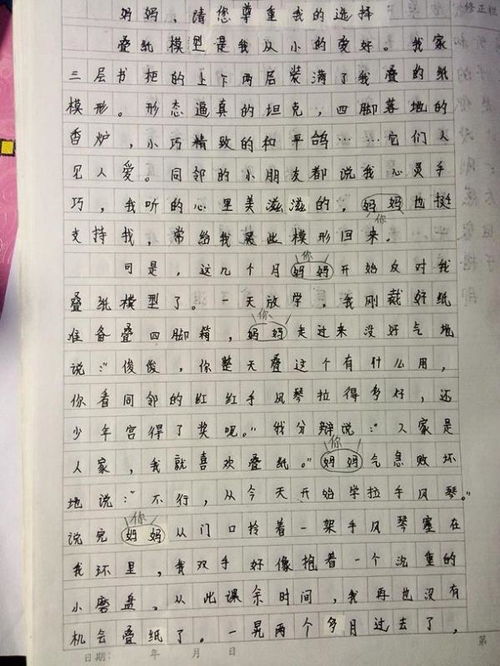 修正栏
妈妈，请您尊重我的选择
叠纸模型是我从小的爱好。我家
三层书柜的上下两层装满了我叠的纸
模形。形态逼真的坦克，四脚落地的
香炉，小巧精致的和平鸽……它们人
见人爱。同邻的小朋友都说我心灵手
巧，我听的心里美滋滋的，妈妈也挺
你
支持我，常给我买些模形回来。
你
可是，这几个月妈妈开始反对我
叠纸模型了。一天放学，我刚裁好纸
你
准备叠四脚箱，妈妈走过来没好气地
说：“俊俊，你整天叠这个有什么用，
你看同邻的红红手风琴拉得多好，还
少年宫得了奖呢。”我分辩说：“人家是
你
人家，我就喜欢叠纸。”妈妈气急败坏
地说：“不行，从今天开始学拉手风琴。”
你
说完妈妈从门口拎着一架手风琴塞在
我怀里，我双手好像抱着一个沉重的
小磨盘。从此课余时间，我再也没有
机会叠纸了。一晃两个多月过去了，
日期： 年 月 日
第